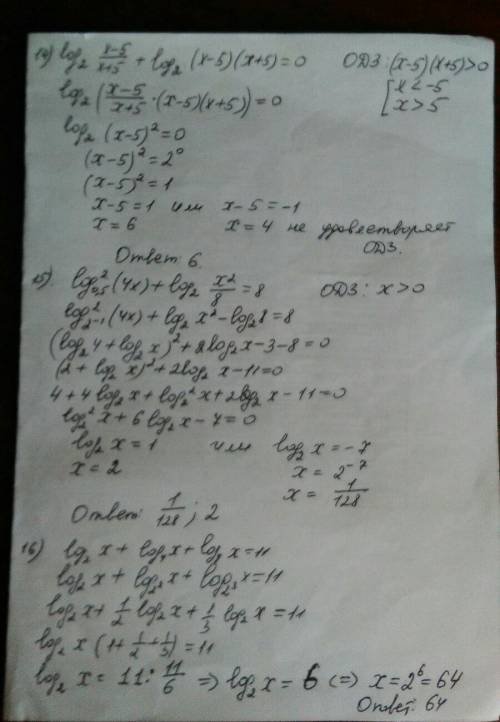 14) log₂ (x-5)/(x+5) + log₂ (x-5)(x+5)=0 ОДЗ: (x-5)(x+5)>0
log₂((x-5)/(x+5)·(x-5)(x+5))=0 [x<-5
log₂ (x-5)²=0 x>5
(x-5)²=2⁰
(x-5)²=1
x-5=1 или x-5=-1
x=6 x=4 не удовлетворяет
ОДЗ.
Ответ: 6.
15). log²₀,₅(4x)+log₂ x²/8=8 ОДЗ: x>0
log²₂₋₁(4x)+log₂ x²-log₂8=8
(log₂4+log₂x)²+2log₂x-3-8=0
(2+log₂x)²+2log₂ x-11=0
4+4log₂x+log₂²x+2log₂x-11=0
log₂²x+6log₂x-7=0
log₂x=1 или log₂x=-7
x=2 x=2⁻⁷
x=1/128
Ответ: 1/128; 2
16) log₂x+log₄x+log₈x=11
log₂x+log₂²x+log₂³x=11
log₂x+1/2 log₂x+1/3 log₂x=11
log₂x(1+1/2+1/3)=11
log₂x=11:11/6 => log₂x=6 (=) x=2⁶=64
Ответ: 64